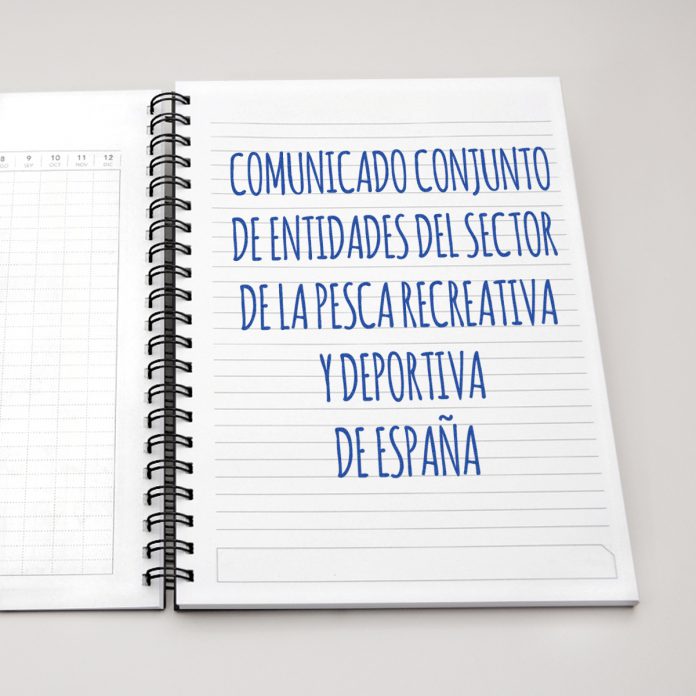 8 9 10 11 12
SEP OCT NOV DIC
COMUNICADO CONJUNTO
DE ENTIDADES DEL SECTOR
DE LA PESCA RECREATIVA
Y DEPORTIVA
DE ESPAÑA